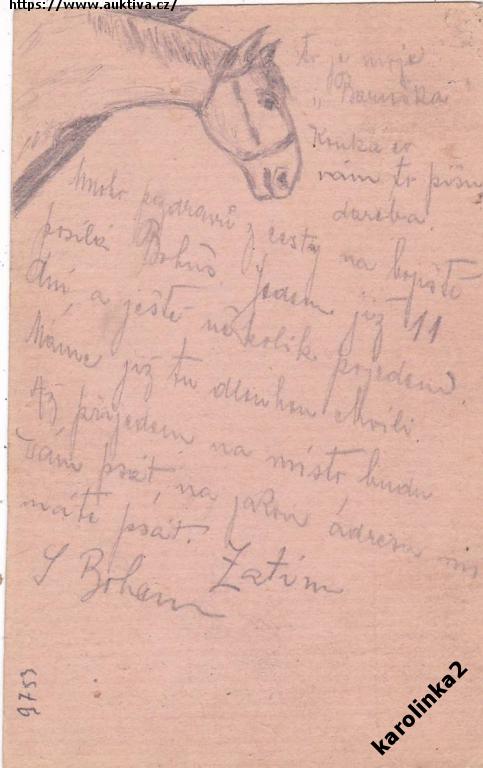 https://www.auktiva.cz/
to je moje
„Baruška"
vám to píšu
dareba.
Mnoho pozdravů z cesty na bojiště
posílá Bohuš. Jedem již 11
dní, a ještě několik pojedem.
Máme již tu dlouhou chvíli.
Až přijedem na místo, budu
Vám psát, na jakou adresu mi
máte psát.
S Bohem Zatím
9753
karolinka2